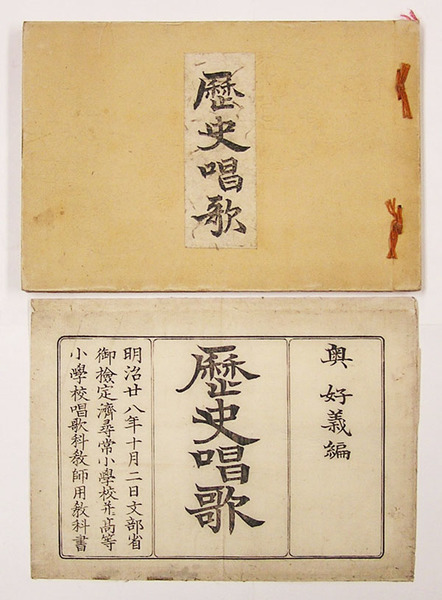 歷史唱歌
奥好義編
歷史唱歌
明治廿八年十月二日文部省
御檢定濟尋常小學校并高等
小學校唱歌科敎師用敎科書